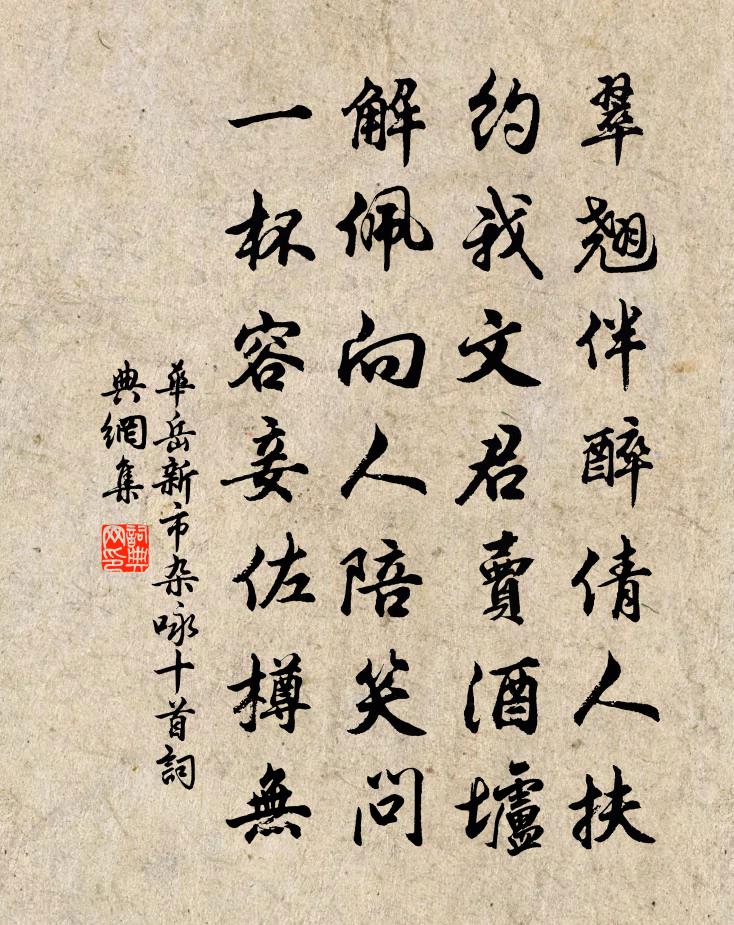 翠翹伴醉倩人扶
約我文君賣酒壚
解佩向人陪笑問
一杯容妾佐樽無
華岳新市杂咏十首詞
典網集
詞典
网印